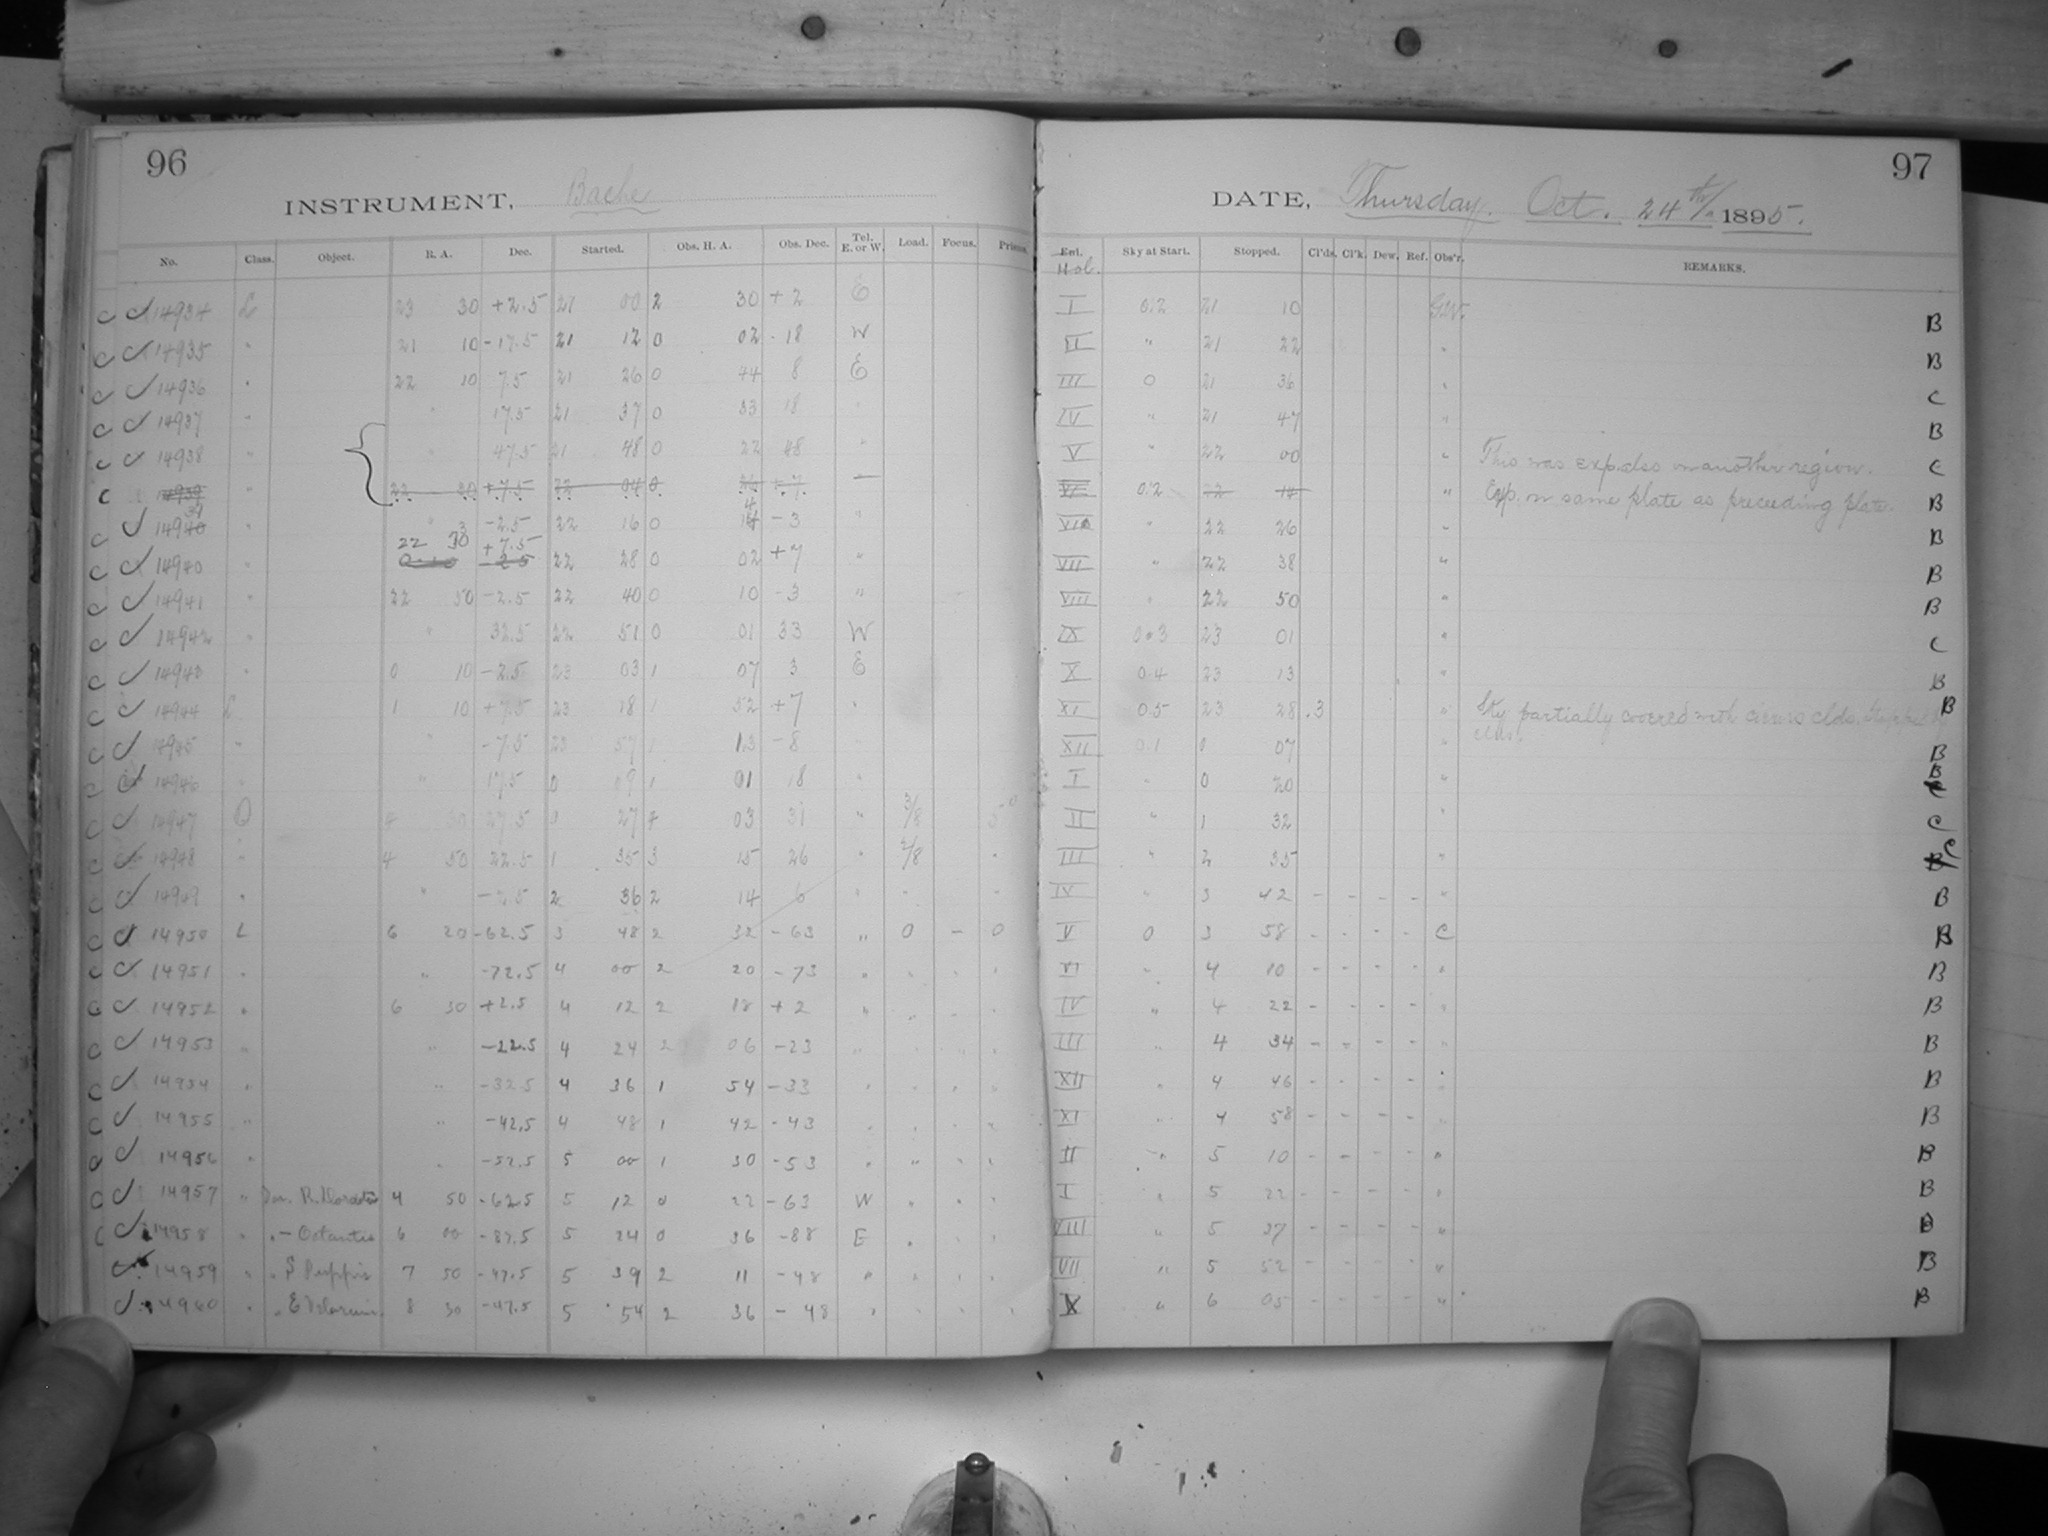 96
INSTRUMENT, Bache
No. Class. Object. R. A. Dec. Started. Obs. H. A. Obs. Dec. Tel. E. or W. Load. Focus. Prisms.
C 14934 L 23 30 +2.5 21 00 2 30 +2 E
C 14935 " 21 10 -17.5 21 12 0 02 - 18 W
C 14936 " 22 10 7.5 21 26 0 44 8 E
C 14937 " " 17.5 21 37 0 33 18 "
C 14938 " " 47.5 21 48 0 22 48 "
C 14939 " 22 30 +7.5 22 04 0 26 +7
C 14940 39 " " -2.5 22 16 0 14 4 -3 "
C 14940 " 22 30 +7.5 22 28 0 02 +7 "
C 14941 " 22 50 -2.5 22 40 0 10 -3 "
C 14942 " " 32.5 22 51 0 01 33 W
C 14943 " 0 10 -2.5 23 03 1 07 3 E
C 14944 L 1 10 +7.5 23 18 1 52 +7 "
C 14945 " " -7.5 23 57 1 13 -8 "
C 14946 " " 17.5 0 09 1 01 18 "
C 14947 27.5 1 27 4 03 31 " 3/8
C 14948 " 4 50 22.5 1 35 3 15 26 " 2/8 "
C 14949 " " 2 36 2 14 6 " " "
C 14950 L 6 20 -62.5 3 48 2 32 -63 " 0 - 0
C 14951 " " -72.5 4 00 2 20 -73 " " " "
C 14952 " 6 30 +2.5 4 12 2 18 +2 " " " "
C 14953 " " -22.5 4 24 2 06 -23 " " " "
C 14954 " " -32.5 4 36 1 54 -33 " " " "
C 14955 " " -42.5 4 48 1 42 -43 " " " "
C 14956 " " -52.5 5 00 1 30 -53 " " " "
C 14957 " R. Doradus 4 50 -62.5 5 12 0 22 -63 W " " "
C 14958 " " - Octantis 6 00 -87.5 5 24 0 36 -88 E " " "
14959 " " S Puppis 7 50 -47.5 5 39 2 11 -48 " " " "
14960 " " E Velorum 8 30 -47.5 5 54 2 36 -48 " " " "
97
DATE, Thursday. Oct. 24th/. 1895.
Hol. Sky at Start. Stopped. Cl'ds. Cl'k. Dew. Ref. Obs'r. REMARKS.
I 0.2 21 10 B
II " 21 22 " B
III 0 21 36 " C
IV " 21 47 " B
V " 22 00 " This was exp. also on another region. C
VI 0.2 22 14 " Exp. on same plate as preceeding plate. B
VI " 22 26 " B
VII " 22 38 " B
VIII " 22 50 " B
IX 0.3 23 01 " C
X 0.4 23 13 " B
XI 0.5 23 28 .3 " Sky partially covered with cirrus clds. B
XII 0.1 0 07 " B
I " 0 20 " B
II " 1 32 " C
III " 2 35 " C
IV " 3 42 - - - - " B
V 0 3 58 - - - - C B
VI " 4 10 - - - - " B
IV " 4 22 - - - - " B
III " 4 34 - - - - " B
XII " 4 46 - - - - " B
XI " 4 58 - - - - " B
II " 5 10 - - - - " B
I " 5 22 - - - - " B
VIII " 5 37 - - - - " B
VII " 5 52 - - - - " B
X " 6 05 - - - - " B